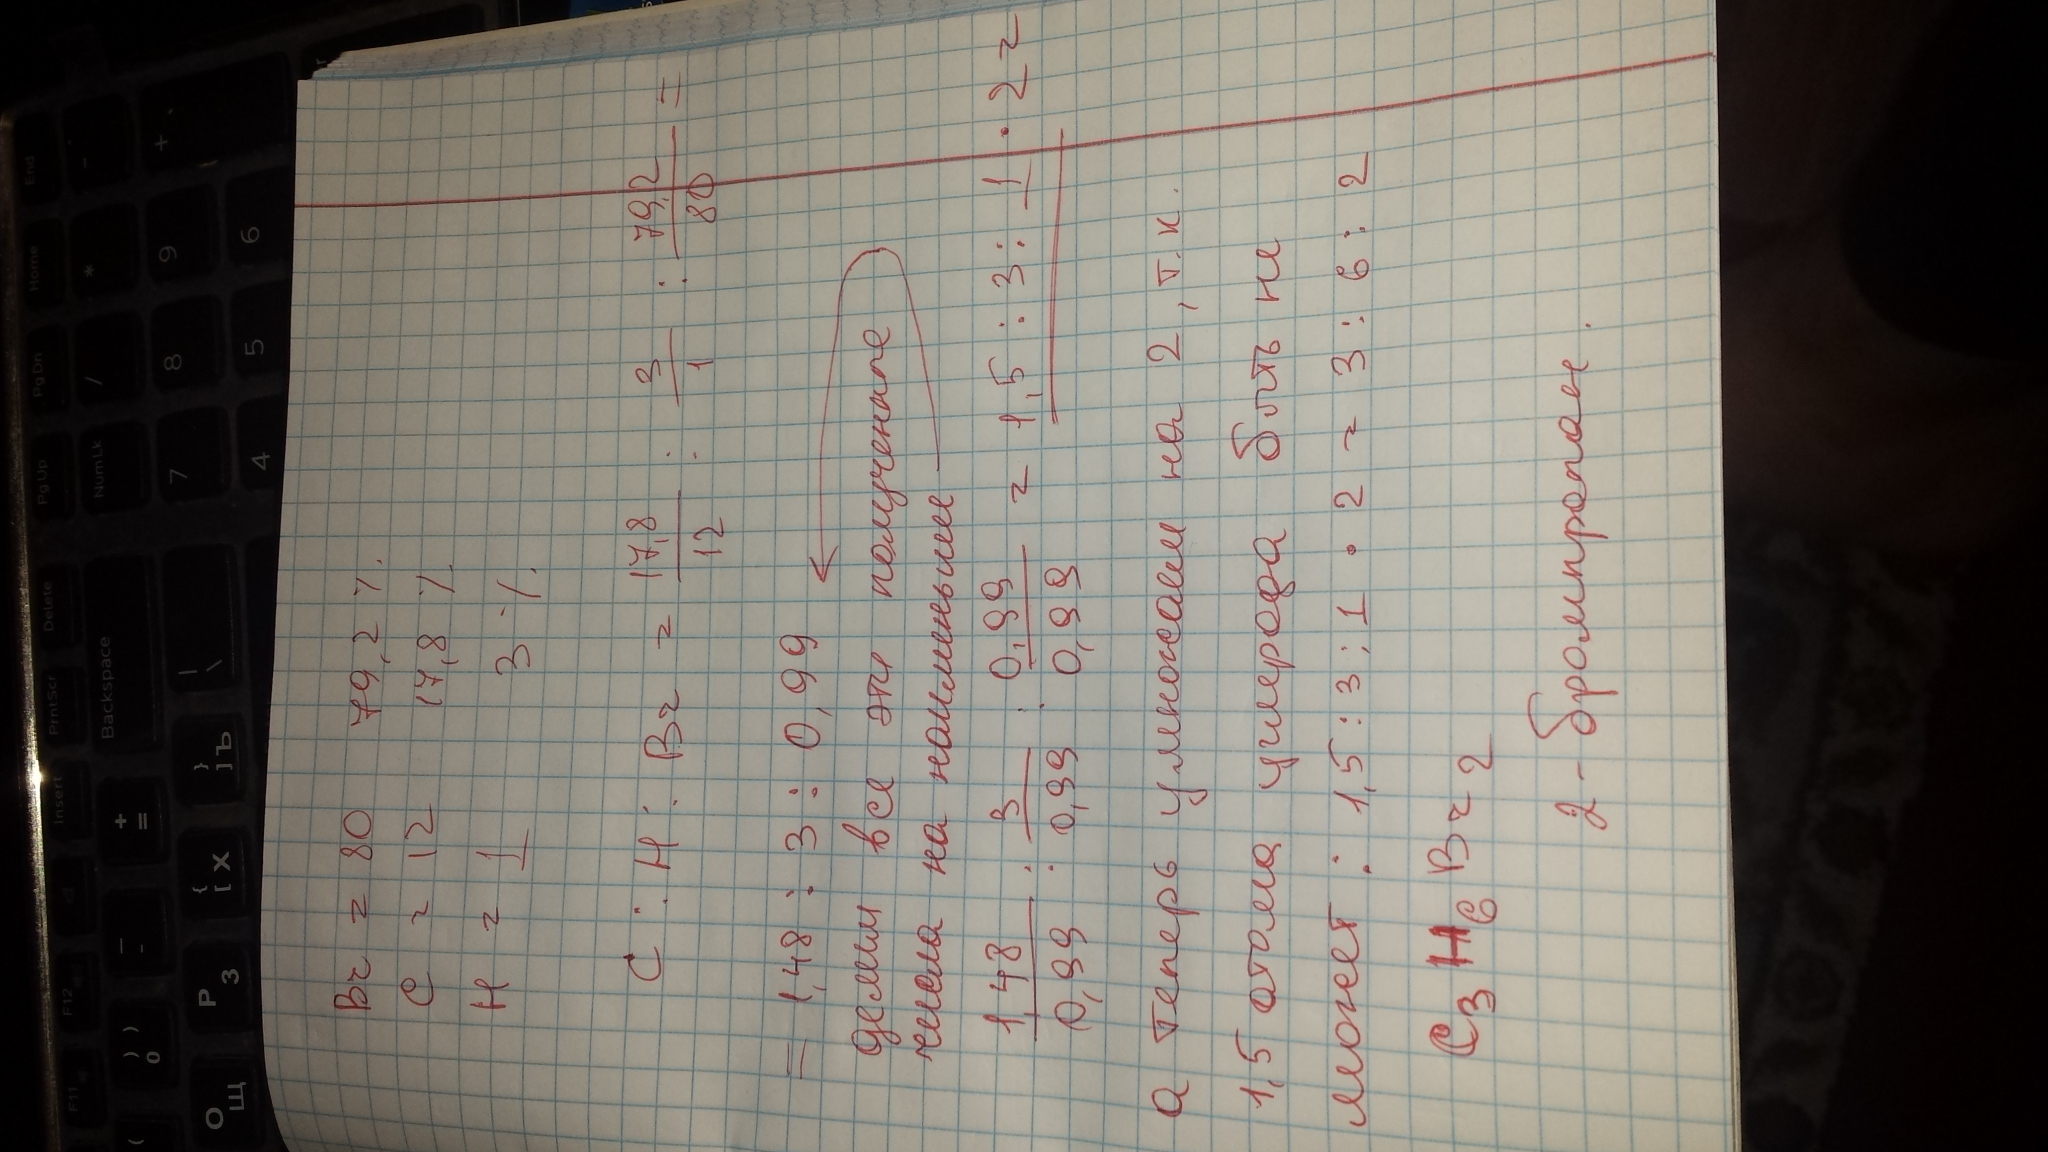 Br = 80 79,2 %
C = 12 17,8 %
H = 1 3 %
C : H : Br = 17,8/12 : 3/1 : 79,2/80 =
= 1,48 : 3 : 0,99
делим все эти полученные
числа на наименьшее
1,48/0,99 : 3/0,99 : 0,99/0,99 = 1,5 : 3 : 1 · 2 =
а теперь умножаем на 2, т.к.
1,5 атома углерода быть не
может : 1,5 : 3 : 1 · 2 = 3 : 6 : 2
C3H6Br2
2-бромпропан.
End
Home
PgDn
PgUp
Delete
PrntScr
Insert
F12
F11
NumLk
Backspace
+
-
*
/
9
8
7
6
5
4
| \
} ] Ъ
{ [ Х
+ =
_ -
) 0
P З
O Щ